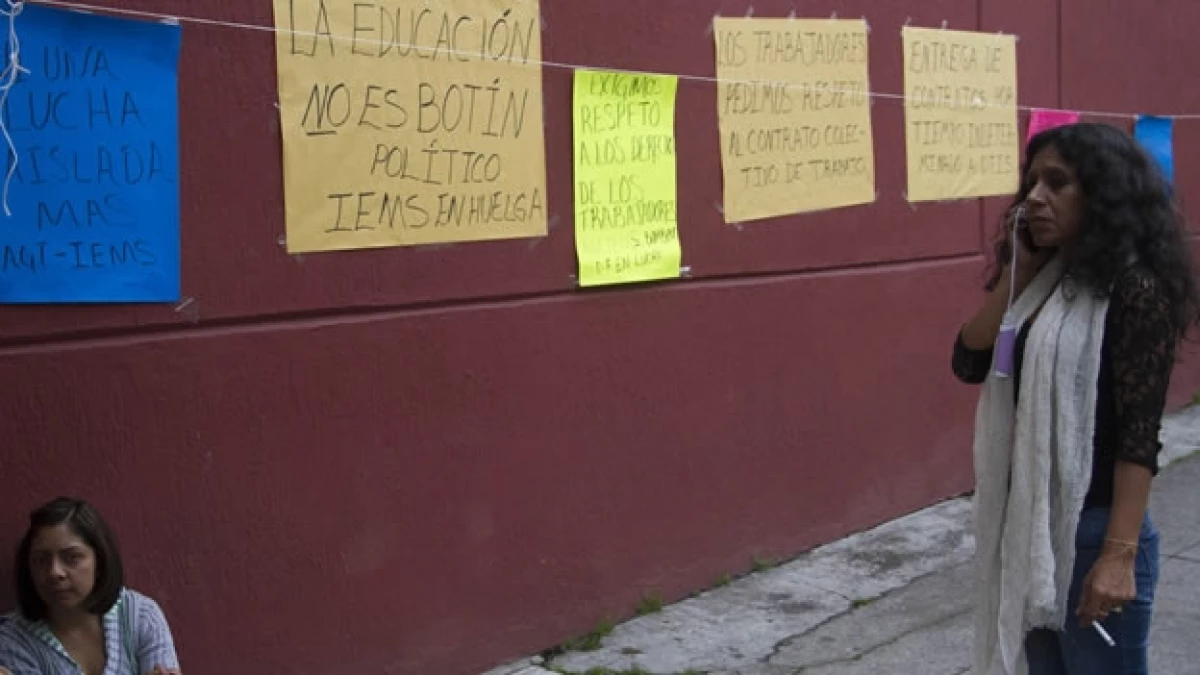 UNA
LUCHA
AISLADA
MAS
AGT-IEMS
LA EDUCACIÓN
NO ES BOTÍN
POLÍTICO
IEMS EN HUELGA
EXIGIMOS
RESPETO
A LOS DERECHOS
DE LOS
TRABAJADORES
D.F EN LUCHA
LOS TRABAJADORES
PEDIMOS RESPETO
AL CONTRATO COLEC-
TIVO DE TRABAJO
ENTREGA DE
CONTRATOS POR
TIEMPO INDETER-
MINADO A DTIS